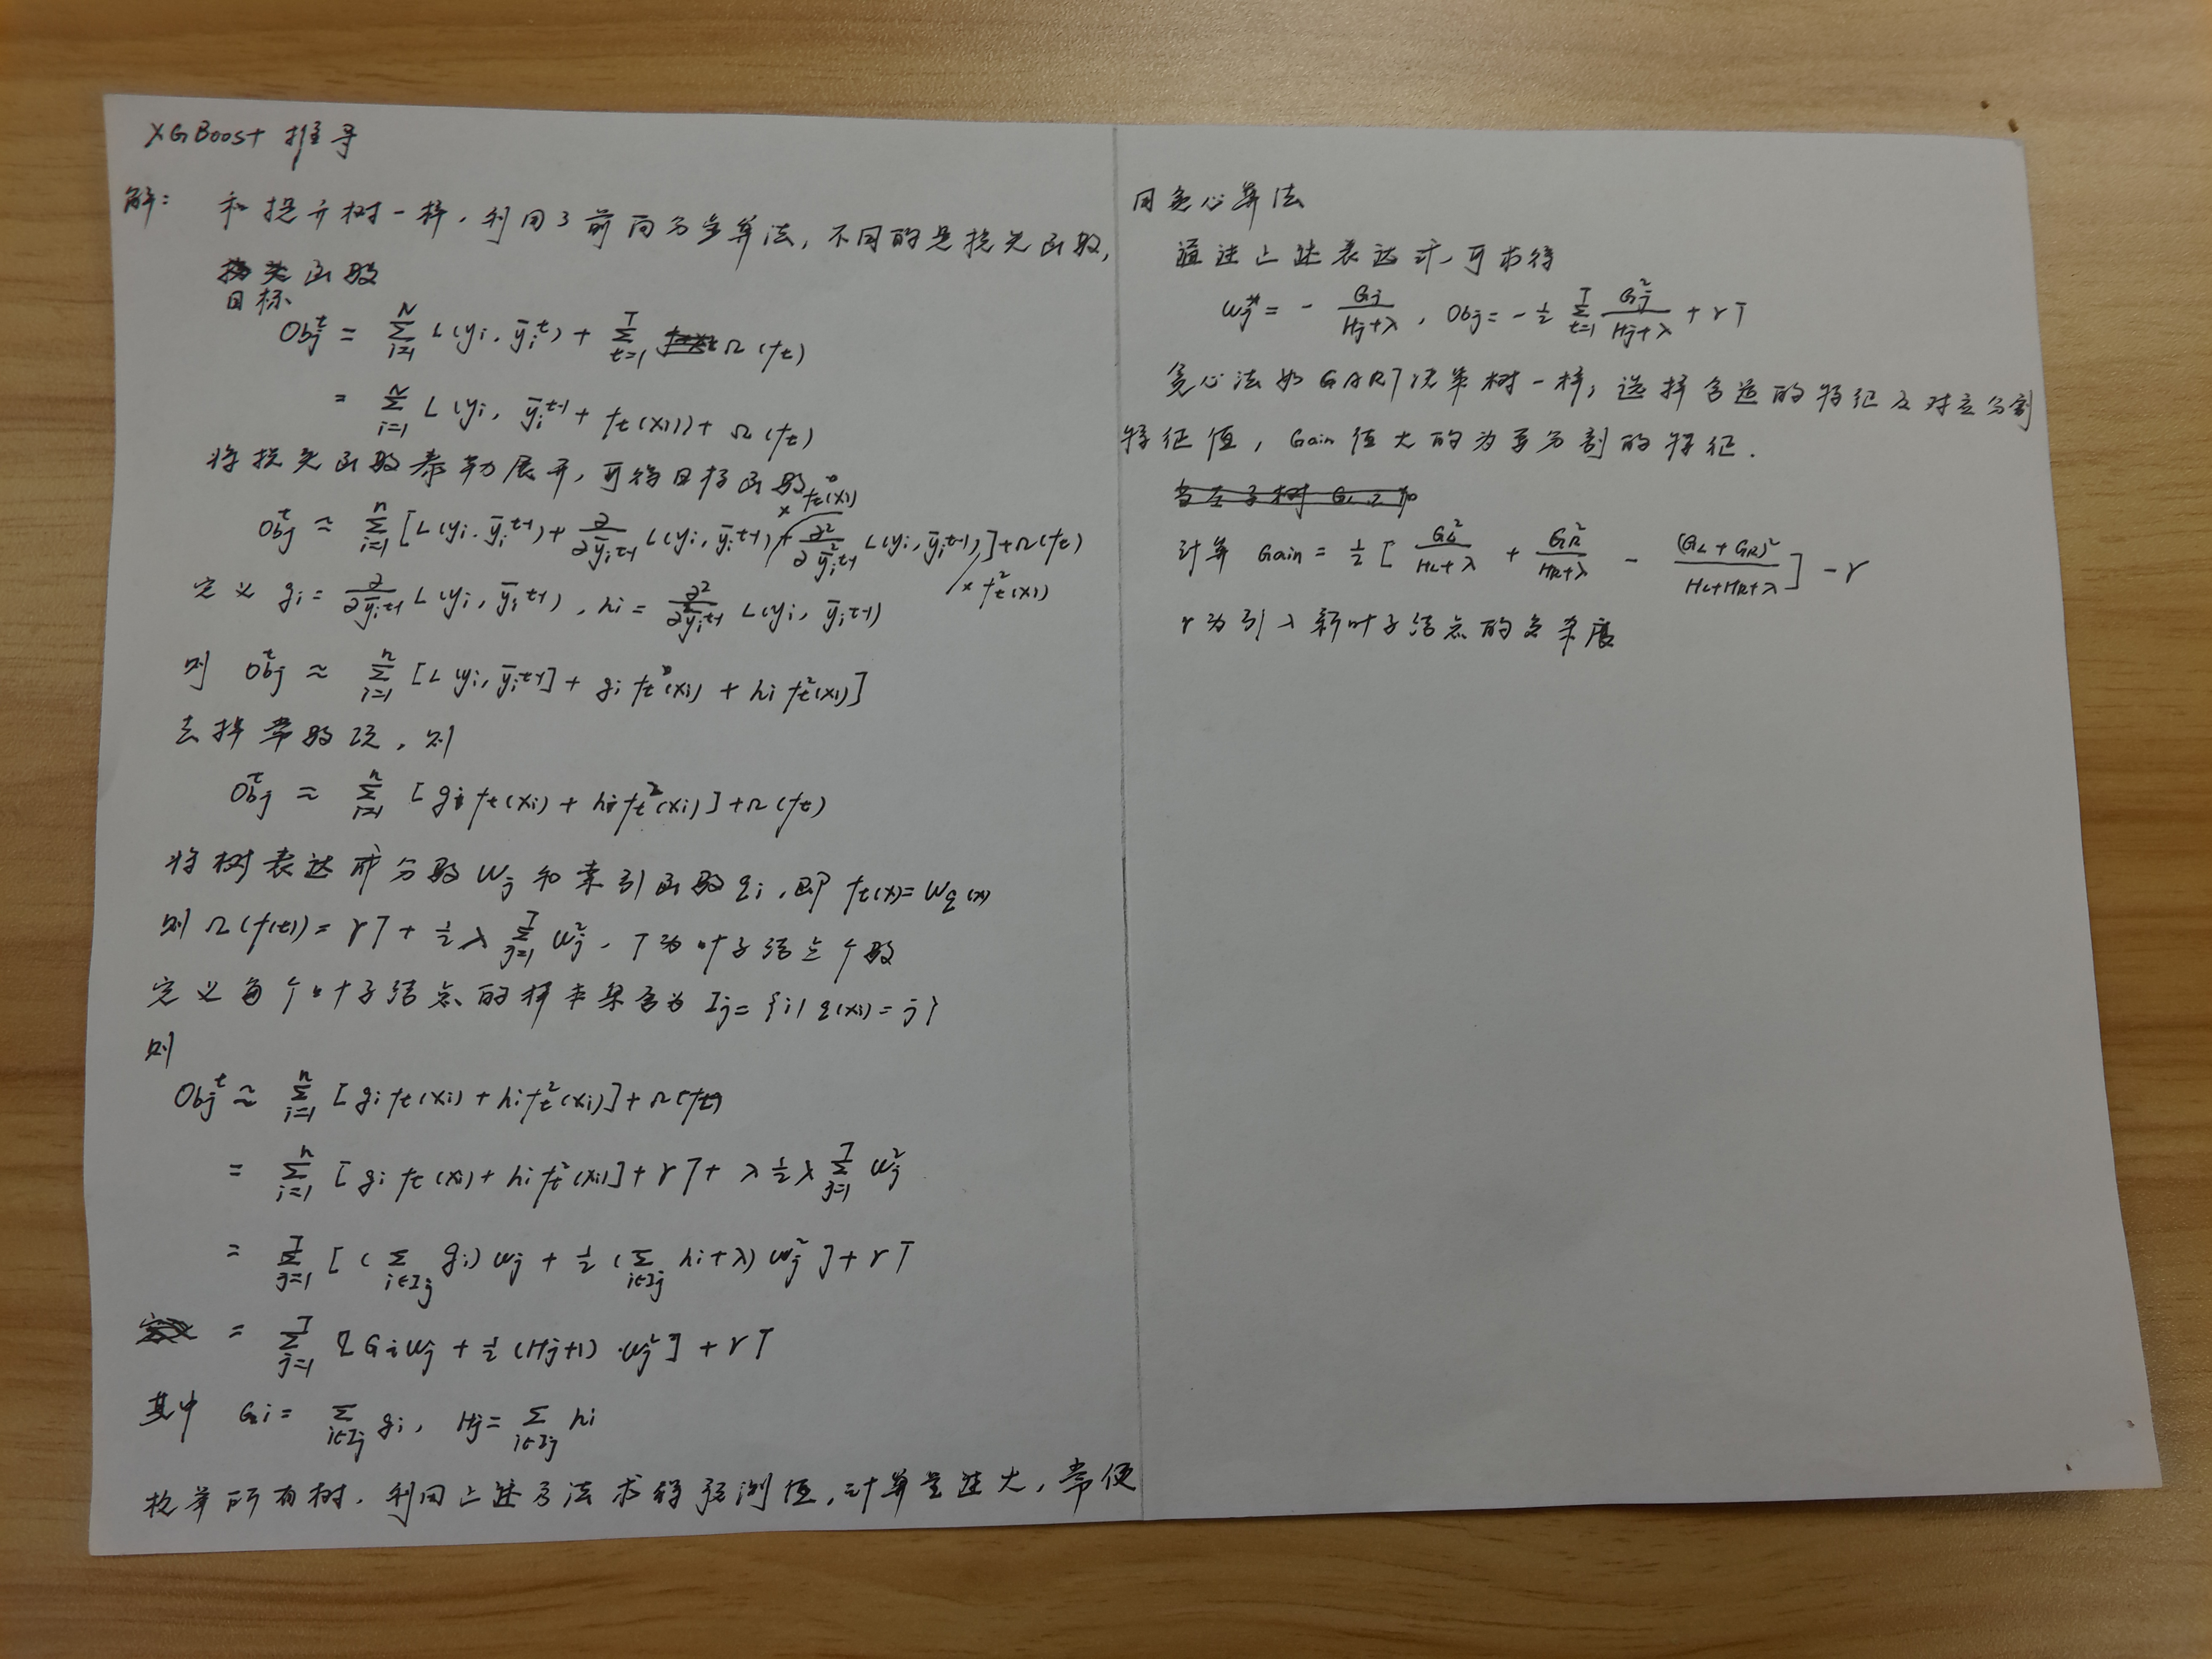 XGBoost 推导
解： 和提升树一样，利用了前向分步算法，不同的是损失函数，
函数
目标
Obj^t = Σ_{i=1}^{N} L(yi, ȳi^t) + Σ_{t=1}^{T} Ω(ft)
= Σ_{i=1}^{N} L(yi, ȳi^{t-1} + ft(xi)) + Ω(ft)
将损失函数泰勒展开，可得目标函数
Obj^t ≈ Σ_{i=1}^{n} [L(yi, ȳi^{t-1}) + ∂/∂ȳi^{t-1} L(yi, ȳi^{t-1}) × ft(xi) + ∂²/∂²ȳi^{t-1} L(yi, ȳi^{t-1}) × ft²(xi)] + Ω(ft)
定义 gi = ∂/∂ȳi^{t-1} L(yi, ȳi^{t-1}), hi = ∂²/∂²ȳi^{t-1} L(yi, ȳi^{t-1})
则 Obj^t ≈ Σ_{i=1}^{n} [L yi, ȳi^{t-1}] + gi ft(xi) + hi ft²(xi)]
去掉常数项，则
Obj^t ≈ Σ_{i=1}^{n} [gi ft(xi) + hi ft²(xi)] + Ω(ft)
将树表达成分数 Wj 和索引函数 qi，即 ft(x) = Wq(x)
则 Ω(f(t)) = γT + ½ λ Σ_{j=1}^{T} Wj²，T为叶子结点个数
定义每个叶子结点的样本集合为 Ij = {i | q(xi) = j}
则
Obj^t ≈ Σ_{i=1}^{n} [gi ft(xi) + hi ft²(xi)] + Ω(ft)
= Σ_{i=1}^{n} [gi ft(xi) + hi ft²(xi)] + γT + λ ½ λ Σ_{j=1}^{T} Wj²
= Σ_{j=1}^{T} [(Σ_{i∈Ij} gi) wj + ½ (Σ_{i∈Ij} hi + λ) Wj²] + γT
= Σ_{j=1}^{T} [Gi wj + ½ (Hj+1) · wj²] + γT
其中 Gi = Σ_{i∈Ij} gi, Hj = Σ_{i∈Ij} hi
枚举所有树，利用上述方法求得预测值，计算量过大，常使
用贪心算法
通过上述表达式，可求得
wj* = - Gj/(Hj+λ), Obj = -½ Σ_{t=1}^{T} Gj²/(Hj+λ) + γT
贪心法如GART决策树一样，选择合适的特征及对应分割
特征值，Gain值大的为要分割的特征．
当左子树 GL
计算 Gain = ½ [GL²/(HL+λ) + GR²/(HR+λ) - (GL+GR)²/(HL+HR+λ)] - γ
γ为引入新叶子结点的复杂度